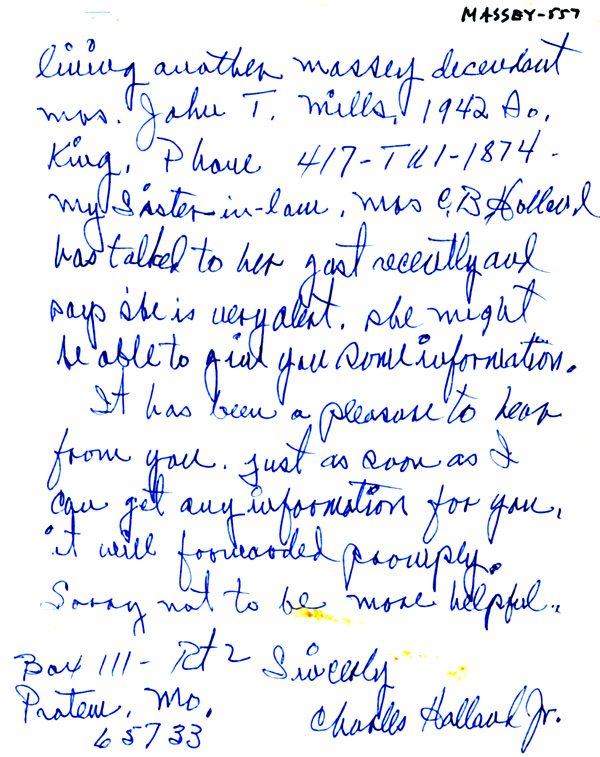 MASSEY-557
living another massey decendant
mrs. John T. Mills, 1942 So.
King, Phone 417-TU1-1874-
my Sister-in-law, mrs C.B Holland
has talked to her just recently and
says she is very alert. she might
be able to give you some information.
It has been a pleasure to hear
from you. just as soon as I
can get any information for you,
it will forwarded promply.
Sorry not to be more helpful..
Box 111 - Rt 2 Sincerly
Protem, Mo. Charles Holland Jr.
65733